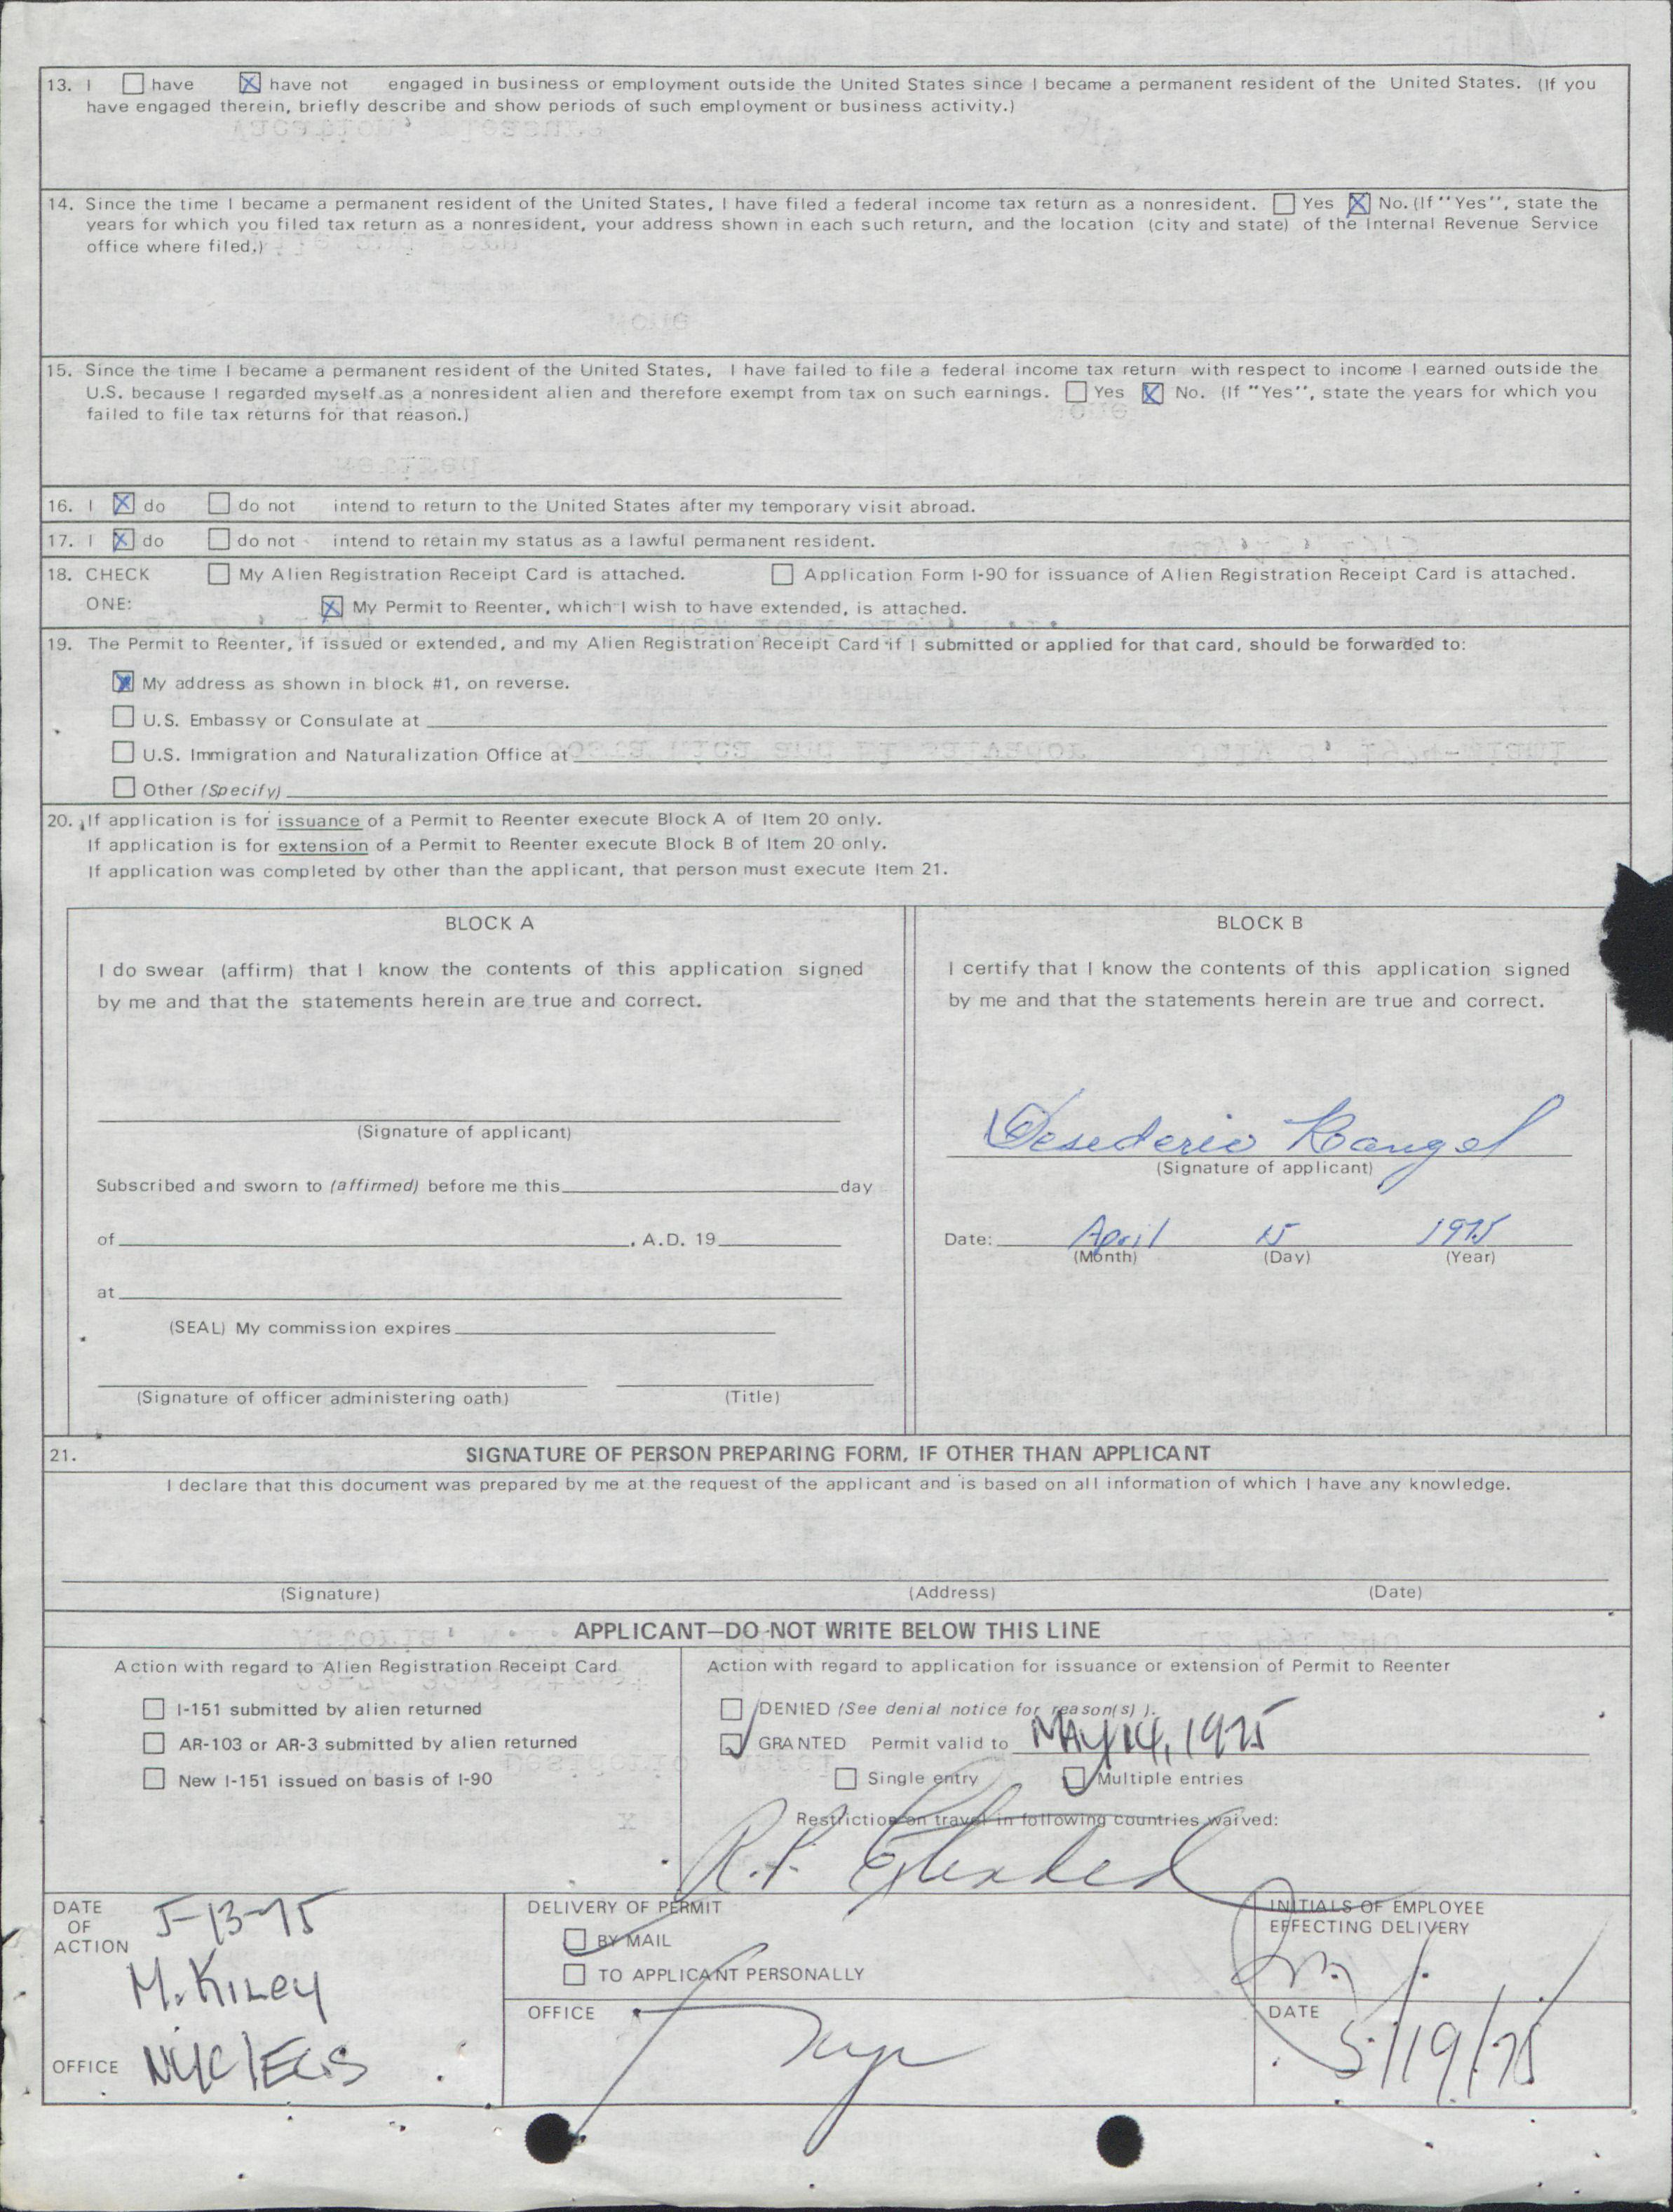 13. I ☐ have ☒ have not engaged in business or employment outside the United States since I became a permanent resident of the United States. (If you
have engaged therein, briefly describe and show periods of such employment or business activity.)
14. Since the time I became a permanent resident of the United States, I have filed a federal income tax return as a nonresident. ☐ Yes ☒ No. (If "Yes", state the
years for which you filed tax return as a nonresident, your address shown in each such return, and the location (city and state) of the Internal Revenue Service
office where filed.)
15. Since the time I became a permanent resident of the United States, I have failed to file a federal income tax return with respect to income I earned outside the
U.S. because I regarded myself as a nonresident alien and therefore exempt from tax on such earnings. ☐ Yes ☒ No. (If "Yes", state the years for which you
failed to file tax returns for that reason.)
16. I ☒ do ☐ do not intend to return to the United States after my temporary visit abroad.
17. I ☒ do ☐ do not intend to retain my status as a lawful permanent resident.
18. CHECK ☐ My Alien Registration Receipt Card is attached. ☐ Application Form I-90 for issuance of Alien Registration Receipt Card is attached.
ONE: ☒ My Permit to Reenter, which I wish to have extended, is attached.
19. The Permit to Reenter, if issued or extended, and my Alien Registration Receipt Card if I submitted or applied for that card, should be forwarded to:
☒ My address as shown in block #1, on reverse.
☐ U.S. Embassy or Consulate at
☐ U.S. Immigration and Naturalization Office at
☐ Other (Specify)
20. If application is for issuance of a Permit to Reenter execute Block A of Item 20 only.
If application is for extension of a Permit to Reenter execute Block B of Item 20 only.
If application was completed by other than the applicant, that person must execute Item 21.
BLOCK A
I do swear (affirm) that I know the contents of this application signed
by me and that the statements herein are true and correct.
(Signature of applicant)
Subscribed and sworn to (affirmed) before me this day
of , A.D. 19
at
(SEAL) My commission expires
(Signature of officer administering oath) (Title)
BLOCK B
I certify that I know the contents of this application signed
by me and that the statements herein are true and correct.
Desederio Rangel
(Signature of applicant)
Date: April 15 1975
(Month) (Day) (Year)
21. SIGNATURE OF PERSON PREPARING FORM, IF OTHER THAN APPLICANT
I declare that this document was prepared by me at the request of the applicant and is based on all information of which I have any knowledge.
(Signature) (Address) (Date)
APPLICANT—DO NOT WRITE BELOW THIS LINE
Action with regard to Alien Registration Receipt Card
☐ I-151 submitted by alien returned
☐ AR-103 or AR-3 submitted by alien returned
☐ New I-151 issued on basis of I-90
Action with regard to application for issuance or extension of Permit to Reenter
☐ DENIED (See denial notice for reason(s) ).
☑ GRANTED Permit valid to MAY 14, 1975
☐ Single entry ☑ Multiple entries
Restriction on travel in following countries waived:
R.P. Extended
DATE OF ACTION 5-13-75
M. Kiley
OFFICE NYC/EGS
DELIVERY OF PERMIT
☑ BY MAIL
☐ TO APPLICANT PERSONALLY
OFFICE nyc
INITIALS OF EMPLOYEE
EFFECTING DELIVERY
DATE
5/19/75